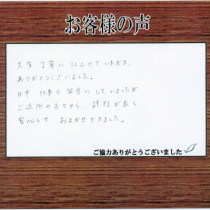 お客様の声
大変 丁寧に 仕上げて いただき、
ありがとうございました。
日中 仕事で 留守に していましたが
ご近所の方々から、評判が良く
安心して おまかせできました。
ご協力ありがとうございました